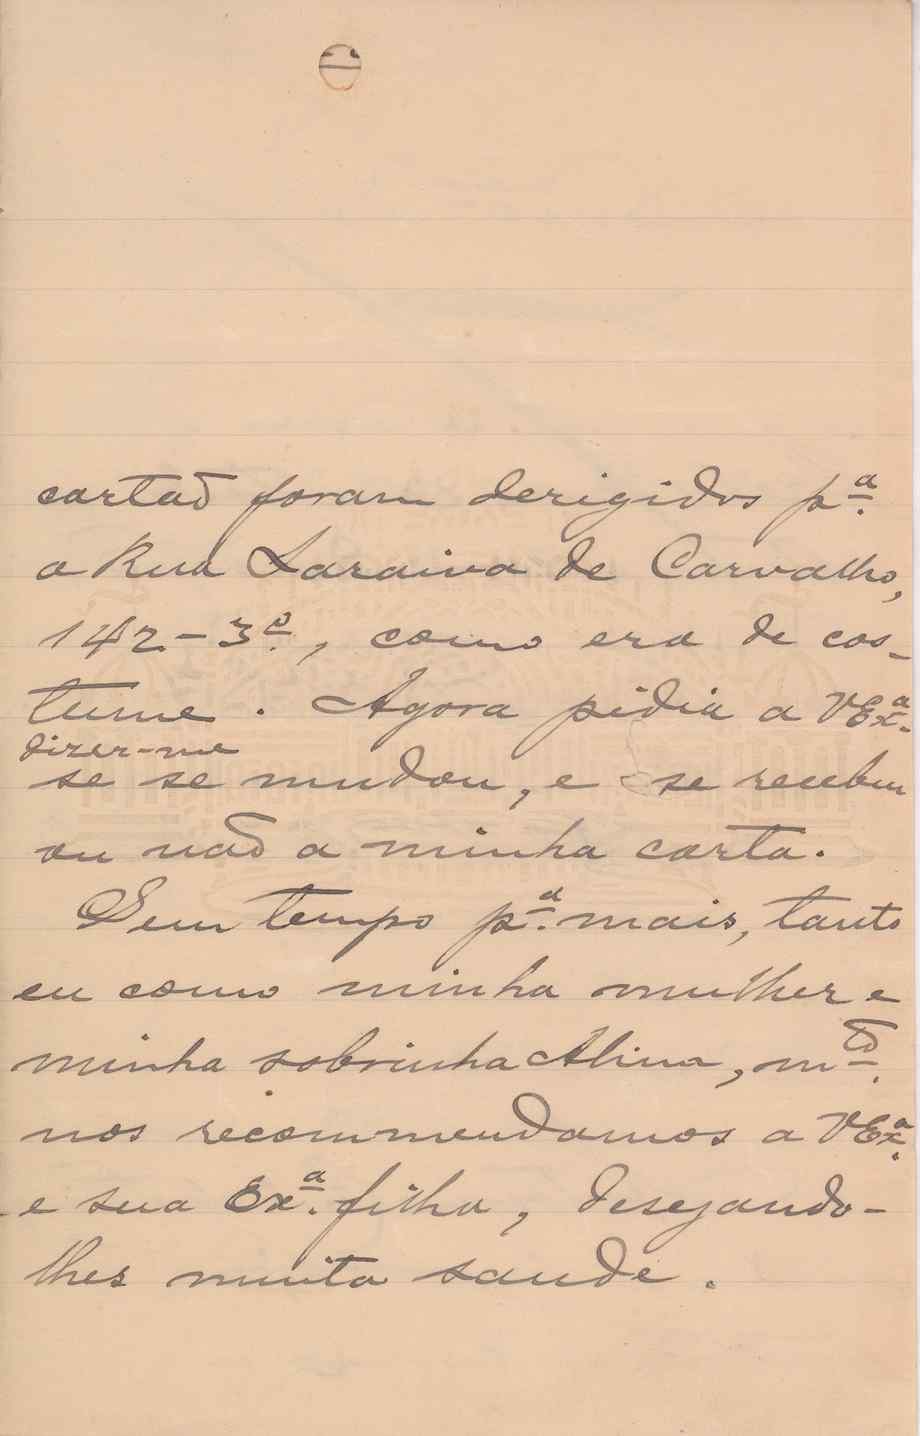 cartaõ foram derigidos p.ª
a Rua Saraiva de Carvalho,
142-3.º, como era de cos-
tume. Agora pidia a VEx.ª
dizer-me
se se mudou, e se recebeu
ou naõ a minha carta.
Sem tempo p.ª mais, tanto
eu como minha mulher e
minha sobrinha Alina, m.to
nos recommendamos a VEx.ª
e sua Ex.ª filha, desejando-
lhes muita saude.